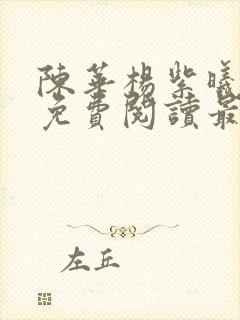 陳華楊紫曦
免費閱讀最
左丘